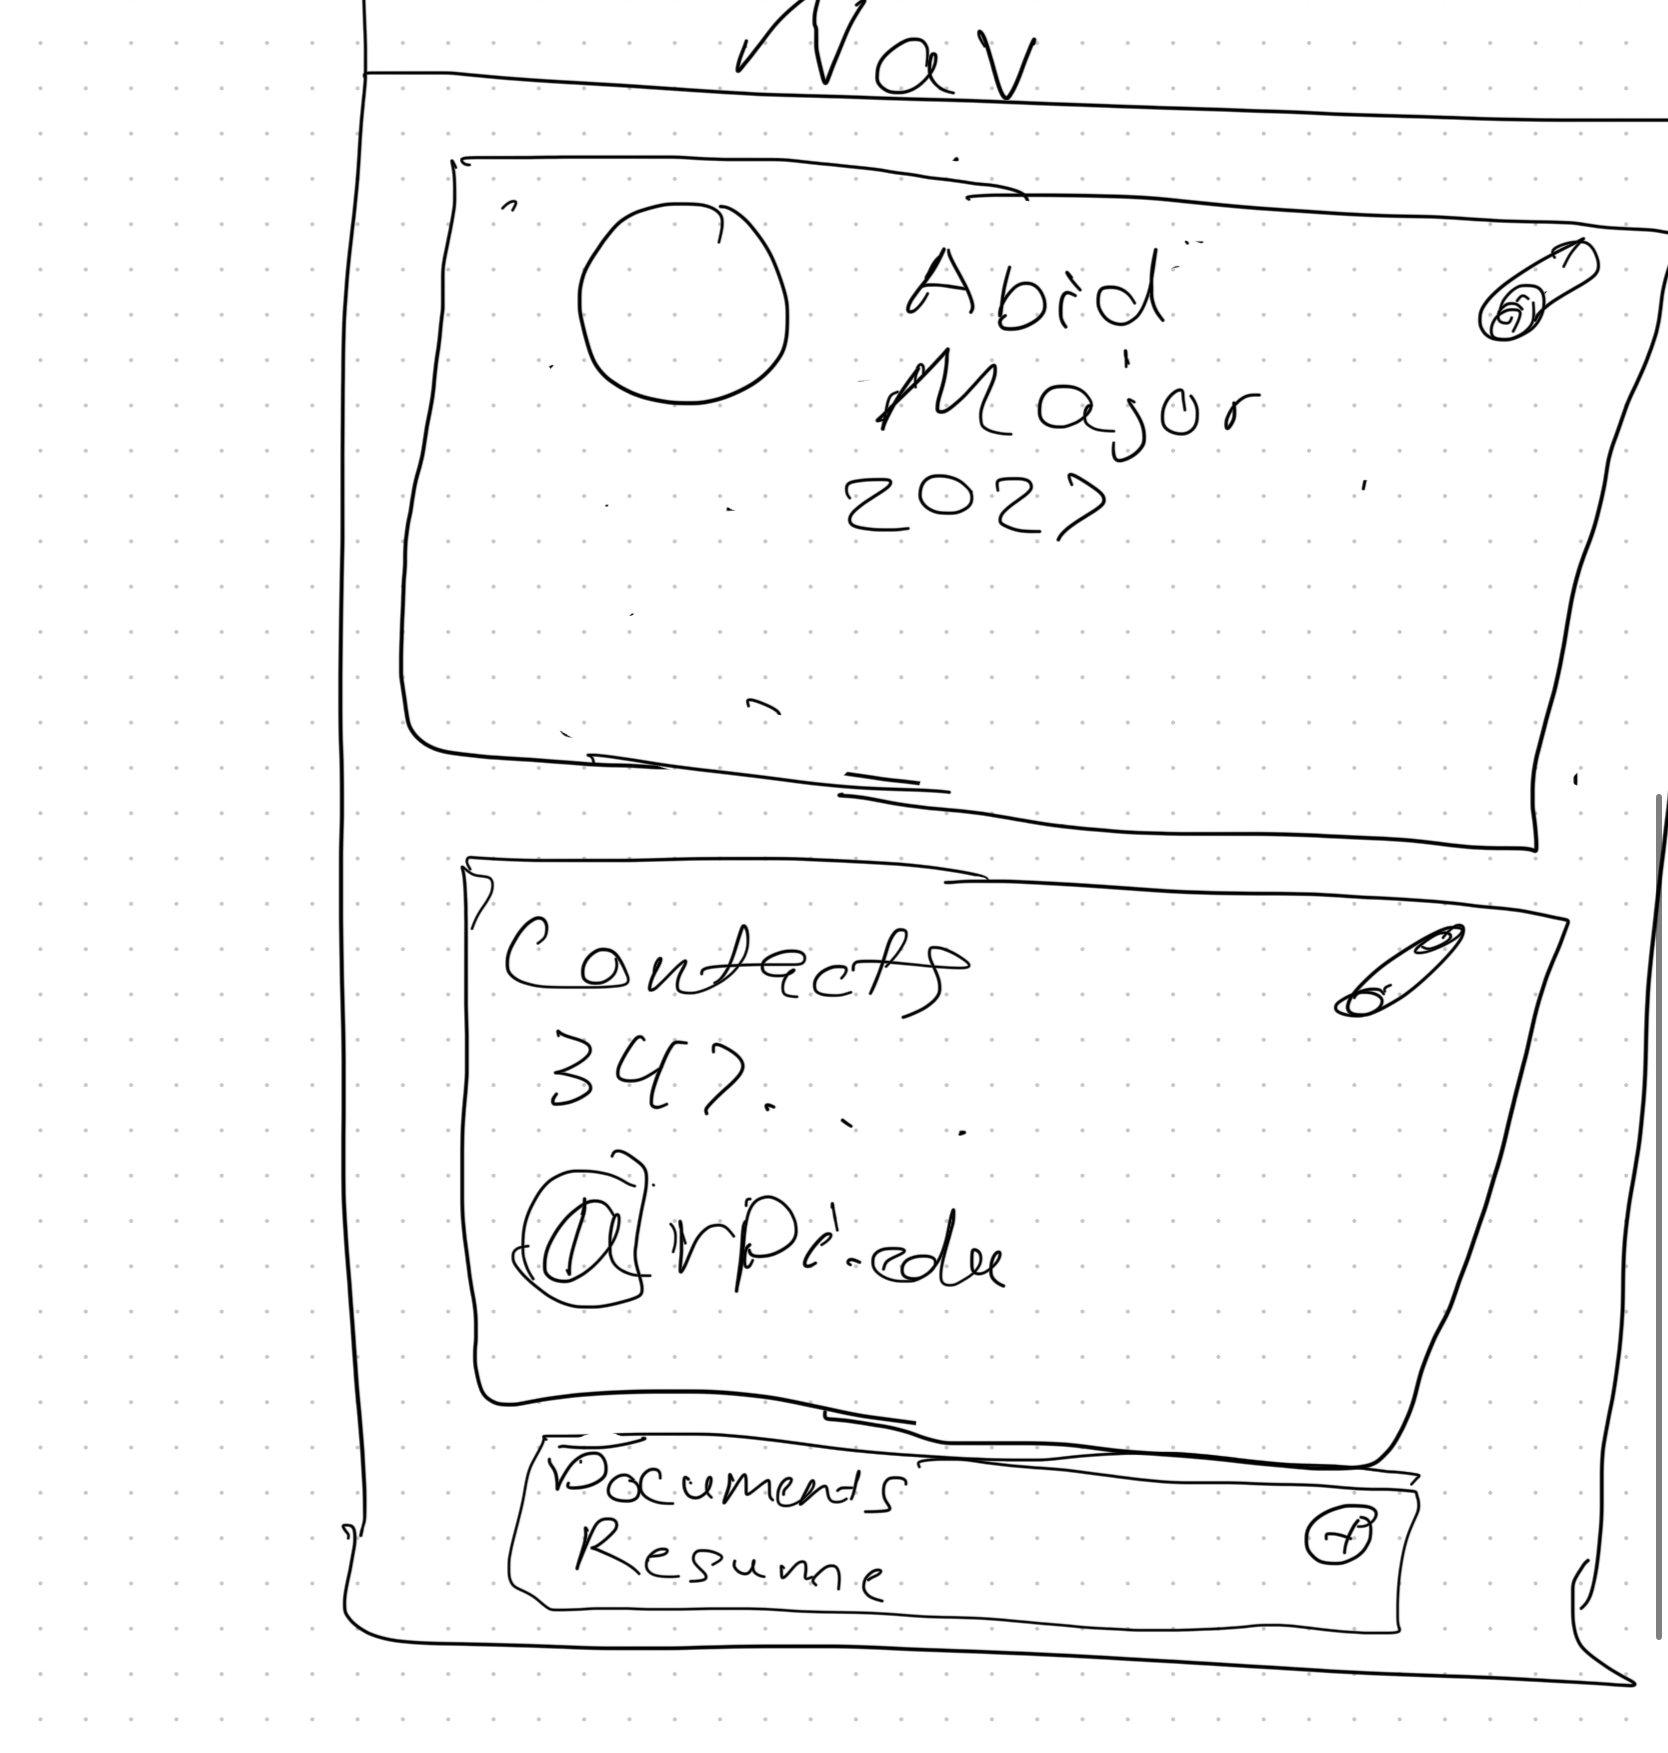 Nav
Abid
Major
2027
Contacts
347...
@rpi.edu
Documents
Resume
+